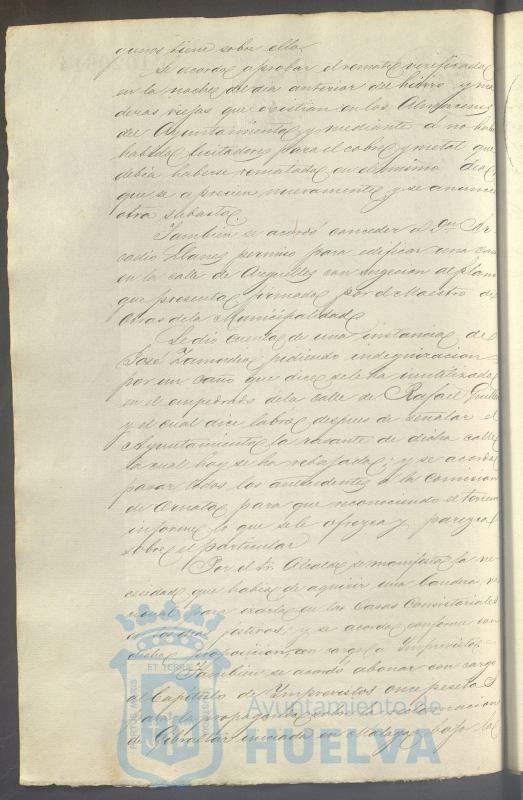 quenos tiene sobre ella.
Se acordó aprobar el remate verificado
en la noche del dia anterior del hierro y ma
deras viejas que existian en los Almacenes
del Ayuntamiento, y mediante á no haber
habido licitadores para el cobre y metal que
debia haberse rematado en el mismo dia,
que se aprecien nuevamente y se anuncie
otra subasta.
Tambien se acordó conceder á Dn. Ar
cadio Llanes permiso para edificar una casa
en la calle de Arguelles con sugecion al plano
que presenta firmado por el Maestro de
Obras de la Municipalidad.
Se dio cuenta de una instancia de
José Zamorano pidiendo indegnizacion
por un caño que dice se le ha inutilizado
en el empedrado de la calle de Rafael
y el cual dice labró despues de señalar el
Ayuntamiento la rasante de dicha calle
la cual hoy se ha rebajado; y se acordó
pasar todos los antecedentes á la Comision
de Ornato para que reconociendo el terreno
informe lo que se le ofrezca y parezca
sobre el particular
Por el Sr. Alcalde se manifestó la ne
cesidad que habia de aquirir una bandera na
cional para izarla en las Casas Consistoriales
en dias festivos; y se acordó conforme con
dicha proposicion, con cargo a Imprevistos.
Tambien se acordó abonar con cargo
al Capítulo de Imprevistos once pesetas
para la propaganda sobre la restauracion
de Gibraltar iniciada en Malaga bajo la
Ayuntamiento de
HUELVA
PORTUS MARIS
ET TERRE
CUSTODIA